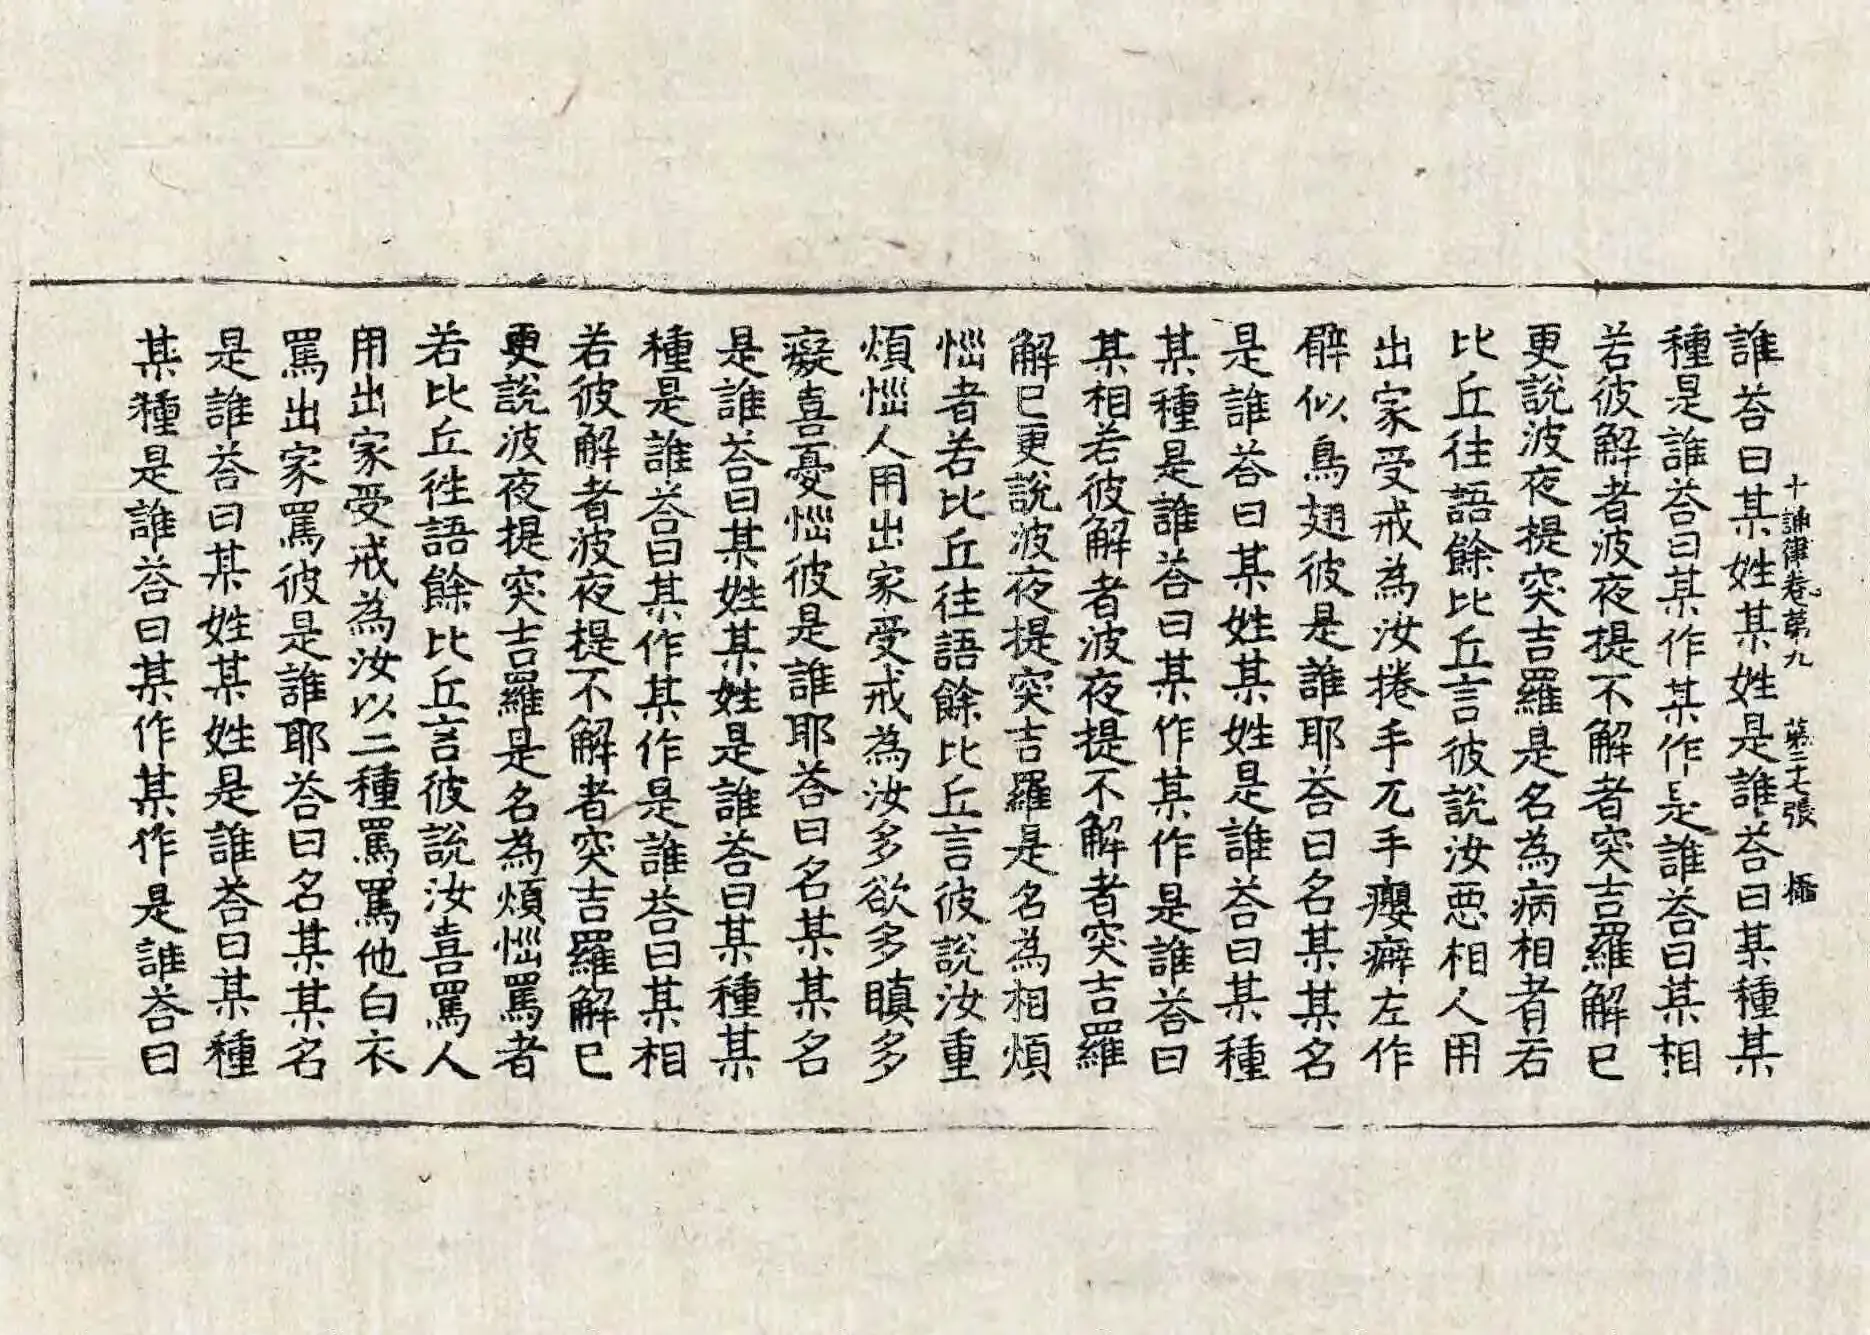 十誦律卷第九 第二十七張
誰荅曰某姓某姓是誰荅曰某種某
種是誰荅曰某作某作是誰荅曰某相
若彼解者波夜提不解者突吉羅解已
更說波夜提突吉羅是名為病相者若
比丘往語餘比丘言彼說汝惡相人用
出家受戒為汝捲手兀手癭癖左作
臂似鳥翅彼是誰耶荅曰名某某名
是誰荅曰某姓某姓是誰荅曰某種
某種是誰荅曰某作某作是誰荅曰
某相若彼解者波夜提不解者突吉羅
解已更說波夜提突吉羅是名為相煩
惱者若比丘往語餘比丘言彼說汝重
煩惱人用出家受戒為汝多欲多瞋多
癡喜憂惱彼是誰耶荅曰名某某名
是誰荅曰某姓某姓是誰荅曰某種某
種是誰荅曰某作某作是誰荅曰某相
若彼解者波夜提不解者突吉羅解已
更說波夜提突吉羅是名為煩惱罵者
若比丘徃語餘比丘言彼說汝喜罵人
用出家受戒為汝以二種罵罵他白衣
罵出家罵彼是誰耶荅曰名某某名
是誰荅曰某姓某姓是誰荅曰某種
某種是誰荅曰某作某作是誰荅曰